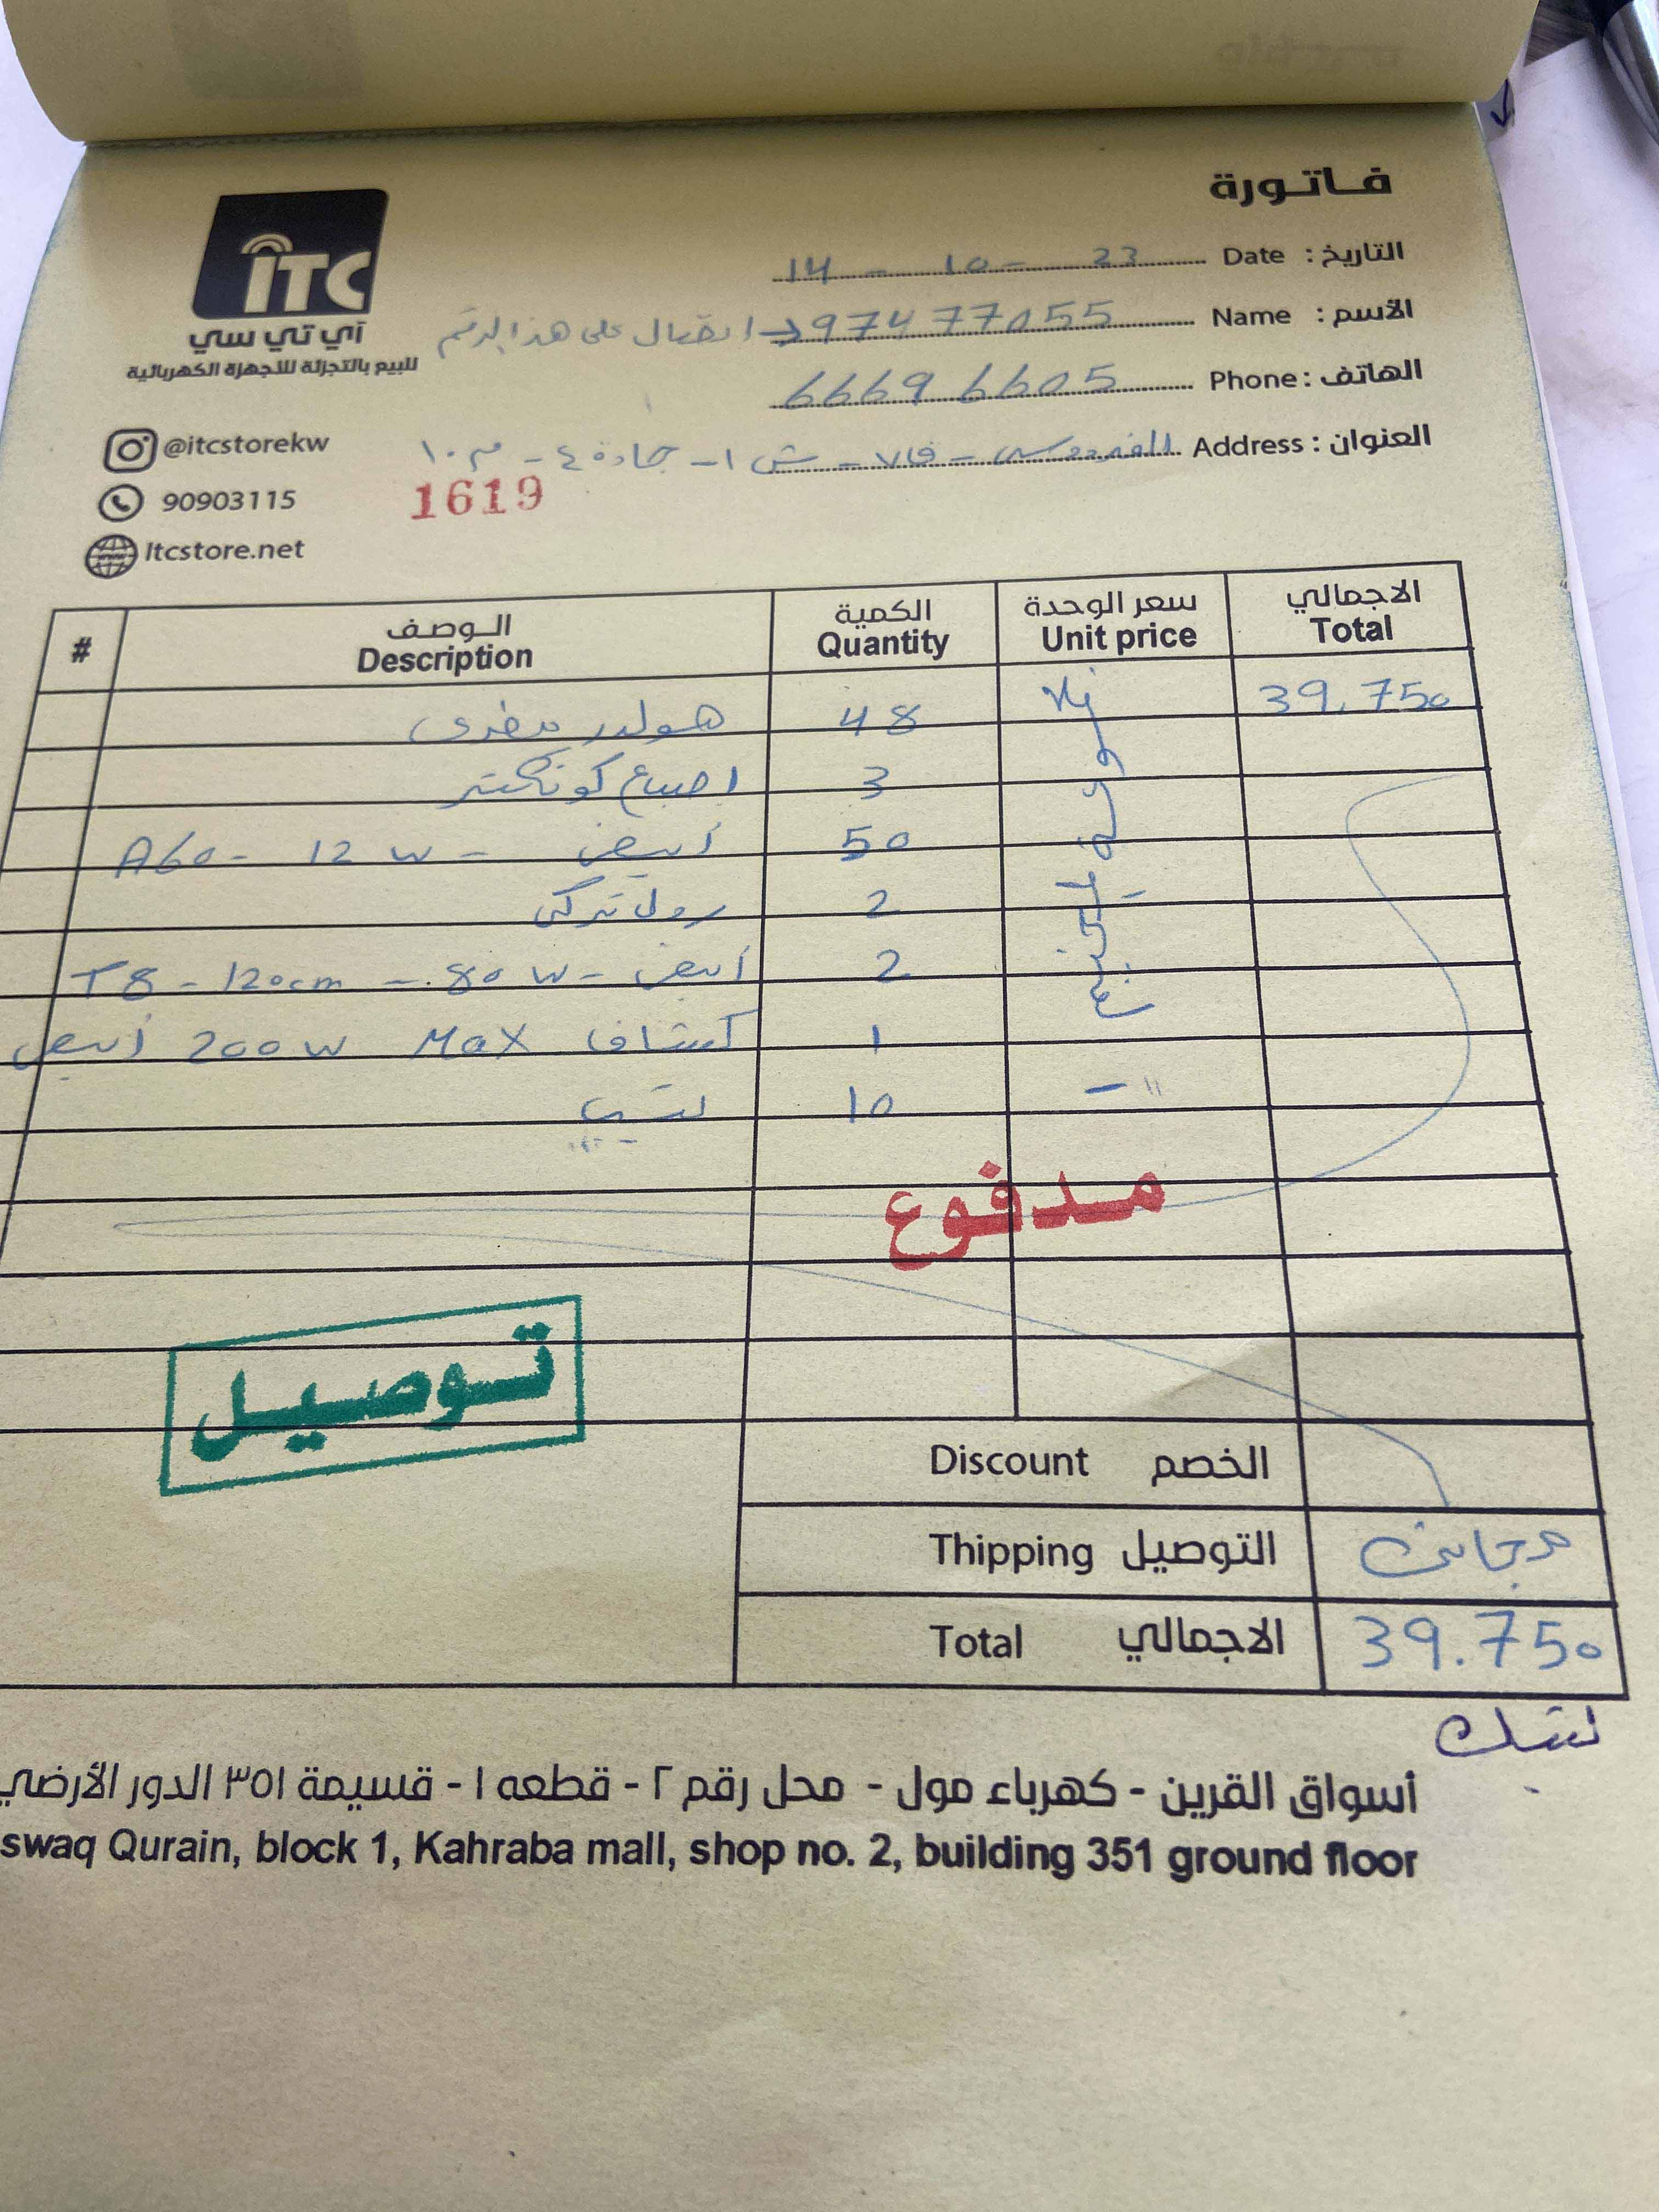 فاتورة
ITC
آي تي سي
للبيع بالتجزئة للأجهزة الكهربائية
@itcstorekw
90903115
Itcstore.net
التاريخ : Date 14 - 10 - 23
الأسم : Name 97477055 → اتصال على هذا الرقم
الهاتف : Phone 66696605
العنوان : Address الفردوس - ق٧ - ش ١ - جادة ٤ - م ١٠
1619
# الوصف Description الكمية Quantity سعر الوحدة Unit price الاجمالي Total
هولدر مغربى 48 39.750
اصباع كونكتر 3
A60 - 12 W - أبيض 50
رول تركى 2
T8 - 120cm - 80 W - أبيض 2
كشاف MAX 200W أبيض 1
تيب 10
مدفوع
توصيل
الخصم Discount
التوصيل Thipping مجانى
الاجمالي Total 39.750
أسواق القرين - كهرباء مول - محل رقم ٢ - قطعه ١ - قسيمة ٣٥١ الدور الأرضي
swaq Qurain, block 1, Kahraba mall, shop no. 2, building 351 ground floor